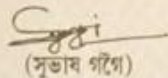 (সুভাষ গগৈ)